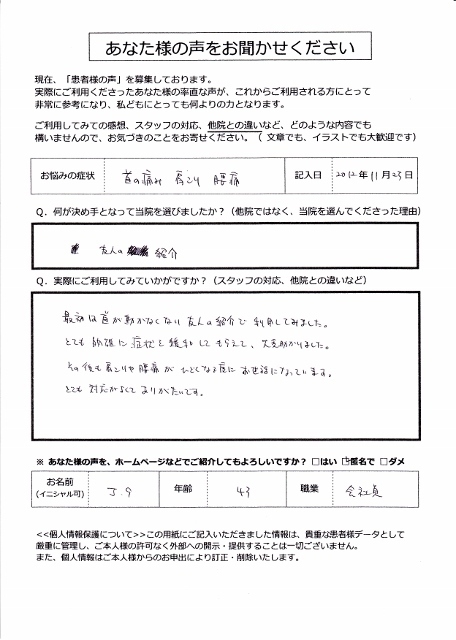 あなた様の声をお聞かせください
現在、「患者様の声」を募集しております。
実際にご利用くださったあなた様の率直な声が、これからご利用される方にとって
非常に参考になり、私どもにとっても何よりの力となります。
ご利用してみての感想、スタッフの対応、他院との違いなど、どのような内容でも
構いませんので、お気づきのことをお寄せください。（ 文章でも、イラストでも大歓迎です）
お悩みの症状 首の痛み 肩こり 腰痛 記入日 2012年11月23日
Q．何が決め手となって当院を選びましたか？（他院ではなく、当院を選んでくださった理由）
友人の 紹介
Q．実際にご利用してみていかがですか？（スタッフの対応、他院との違いなど）
最初は首が動かなくなり友人の紹介で利用してみました。
とても に症状を緩和してもらえて、大変助かりました。
その後も肩こりや腰痛がひどくなる度にお世話になっています。
とても対応がよくてありがたいです。
※ あなた様の声を、ホームページなどでご紹介してもよろしいですか？ □はい □匿名で □ダメ
お名前 J.9 年齢 43 職業 会社員
(イニシャル可)
<<個人情報保護について>>この用紙にご記入いただきました情報は、貴重な患者様データとして
厳重に管理し、ご本人様の許可なく外部への開示・提供することは一切ございません。
また、個人情報はご本人様からのお申出により訂正・削除いたします。